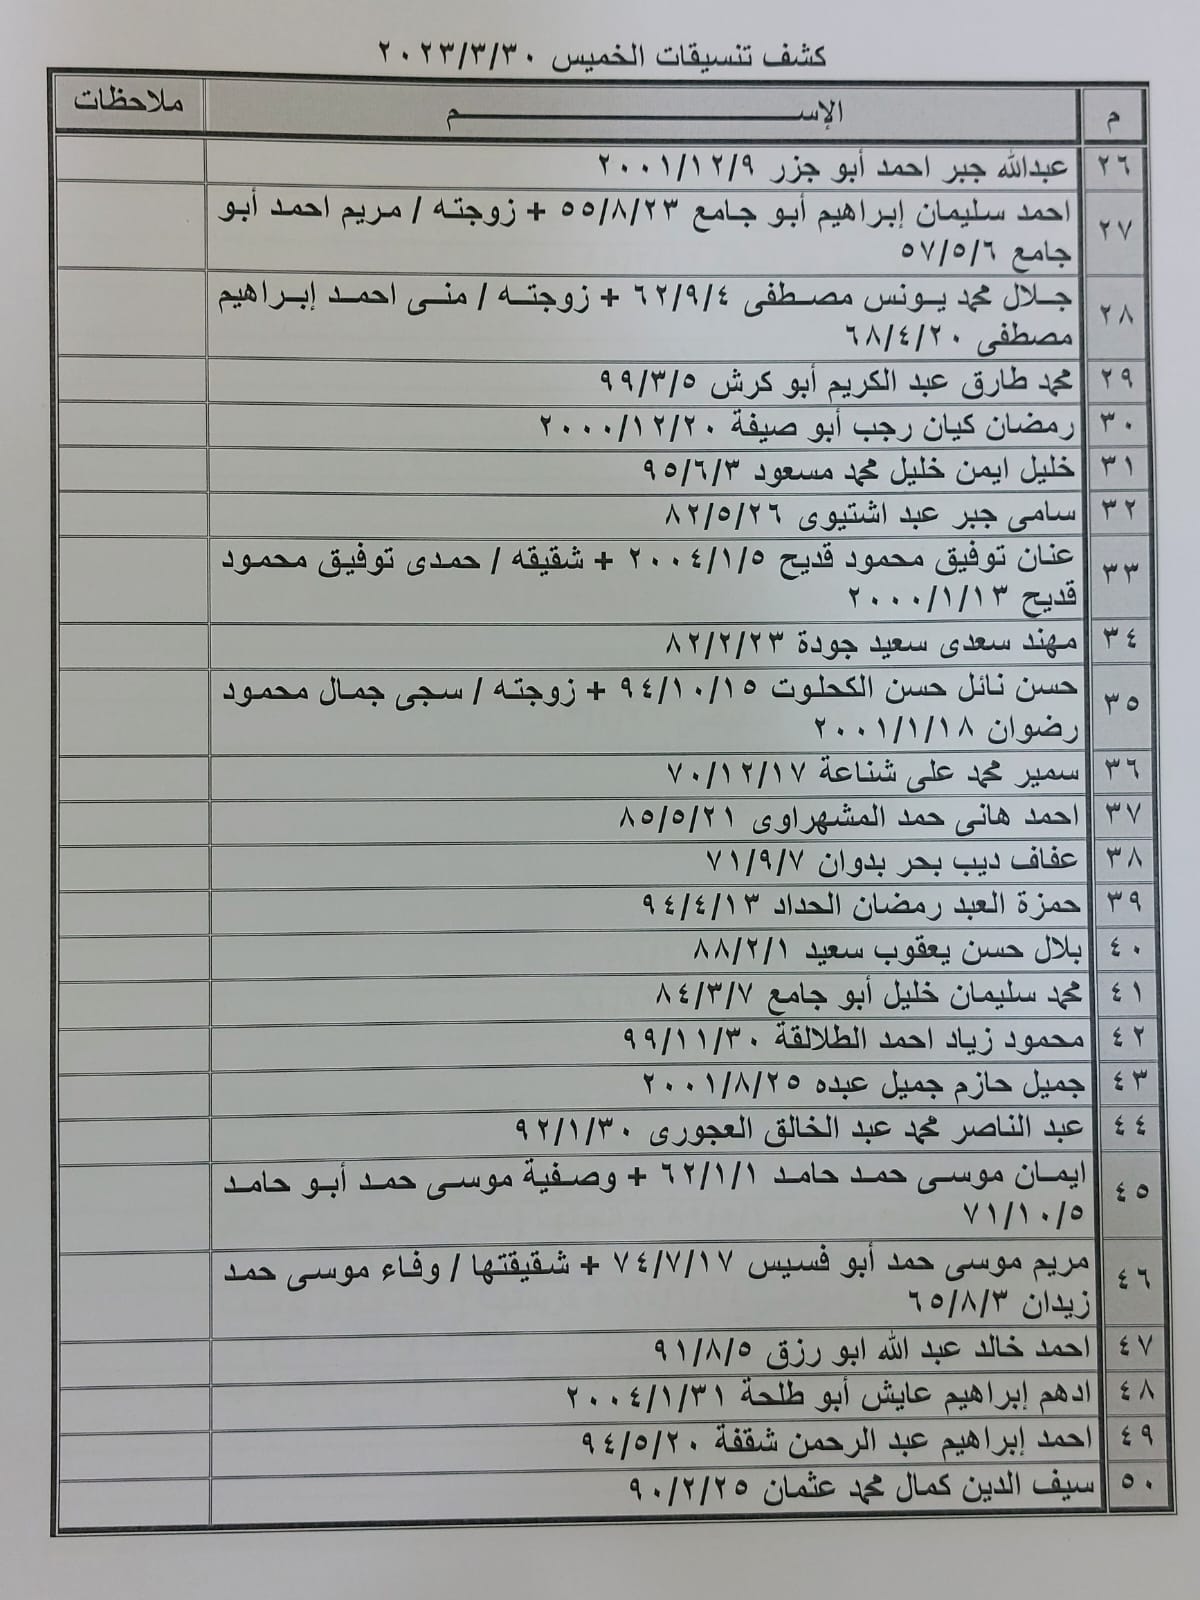 كشف تنسيقات الخميس ٢٠٢٣/٣/٣٠
م الإســـــــــم ملاحظات
٢٦ عبدالله جبر احمد أبو جزر ٢٠٠١/١٢/٩
٢٧ احمد سليمان إبراهيم أبو جامع ٥٥/٨/٢٣ + زوجته / مريم احمد أبو
جامع ٥٧/٥/٦
٢٨ جلال محمد يونس مصطفى ٦٢/٩/٤ + زوجته / منى احمد إبراهيم
مصطفى ٦٨/٤/٢٠
٢٩ محمد طارق عبد الكريم أبو كرش ٩٩/٣/٥
٣٠ رمضان كيان رجب أبو صيفة ٢٠٠٠/١٢/٢٠
٣١ خليل ايمن خليل محمد مسعود ٩٥/٦/٣
٣٢ سامى جبر عبد اشتيوى ٨٢/٥/٢٦
٣٣ عنان توفيق محمود قديح ٢٠٠٤/١/٥ + شقيقه / حمدى توفيق محمود
قديح ٢٠٠٠/١/١٣
٣٤ مهند سعدى سعيد جودة ٨٢/٢/٢٣
٣٥ حسن نائل حسن الكحلوت ٩٤/١٠/١٥ + زوجته / سجى جمال محمود
رضوان ٢٠٠١/١/١٨
٣٦ سمير محمد على شناعة ٧٠/١٢/١٧
٣٧ احمد هانى حمد المشهراوى ٨٥/٥/٢١
٣٨ عفاف ديب بحر بدوان ٧١/٩/٧
٣٩ حمزة العبد رمضان الحداد ٩٤/٤/١٣
٤٠ بلال حسن يعقوب سعيد ٨٨/٢/١
٤١ محمد سليمان خليل أبو جامع ٨٤/٣/٧
٤٢ محمود زياد احمد الطلالقة ٩٩/١١/٣٠
٤٣ جميل حازم جميل عبده ٢٠٠١/٨/٢٥
٤٤ عبد الناصر محمد عبد الخالق العجورى ٩٢/١/٣٠
٤٥ ايمان موسى حمد حامد ٦٢/١/١ + وصفية موسى حمد أبو حامد
٧١/١٠/٥
٤٦ مريم موسى حمد أبو فسيس ٧٤/٧/١٧ + شقيقتها / وفاء موسى حمد
زيدان ٦٥/٨/٣
٤٧ احمد خالد عبد الله ابو رزق ٩١/٨/٥
٤٨ ادهم إبراهيم عايش أبو طلحة ٢٠٠٤/١/٣١
٤٩ احمد إبراهيم عبد الرحمن شقفة ٩٤/٥/٢٠
٥٠ سيف الدين كمال محمد عثمان ٩٠/٢/٢٥